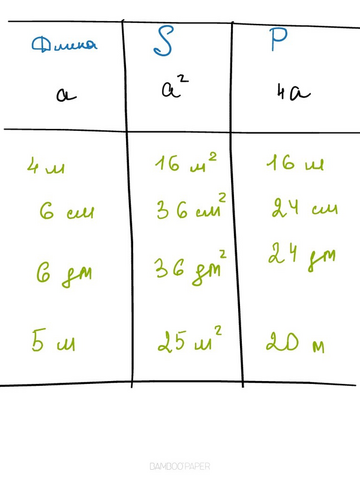 Длина S P
a a² 4a
4 м 16 м² 16 м
6 см 36 см² 24 см
6 дм 36 дм² 24 дм
5 м 25 м² 20 м
BAMBOO PAPER